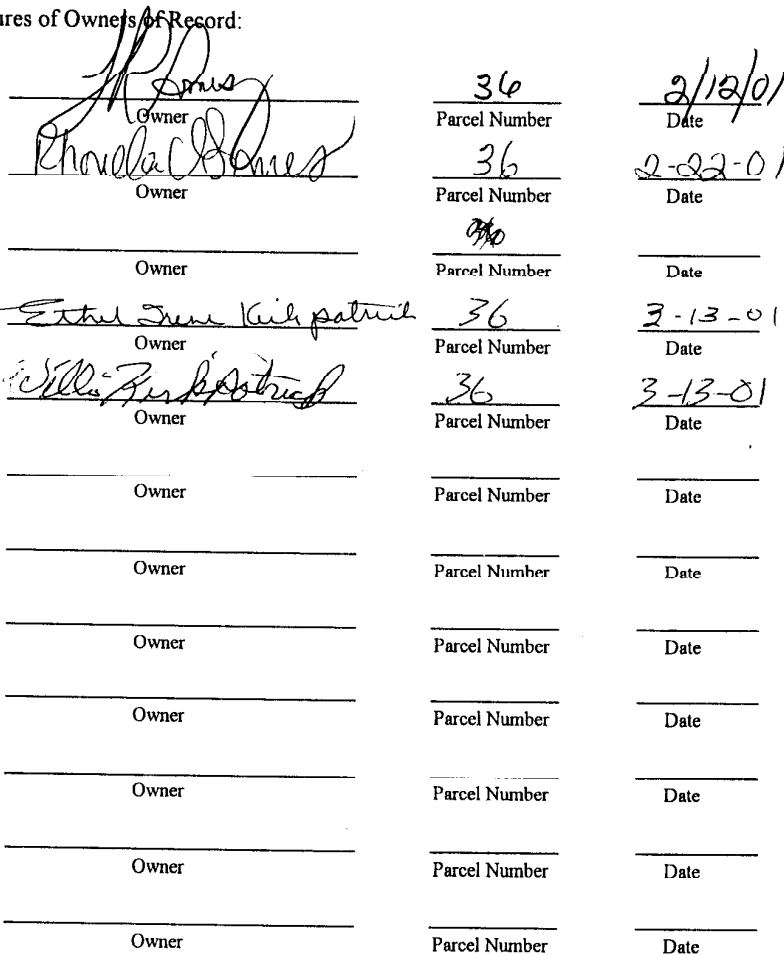 ures of Owners of Record:
Jones 36 2/12/01
Owner Parcel Number Date
Rhonella C Jones 36 2-22-01
Owner Parcel Number Date
Owner Parcel Number Date
Ethel Irene Kirkpatrick 36 3-13-01
Owner Parcel Number Date
Willis Kirkpatrick 36 3-13-01
Owner Parcel Number Date
Owner Parcel Number Date
Owner Parcel Number Date
Owner Parcel Number Date
Owner Parcel Number Date
Owner Parcel Number Date
Owner Parcel Number Date
Owner Parcel Number Date